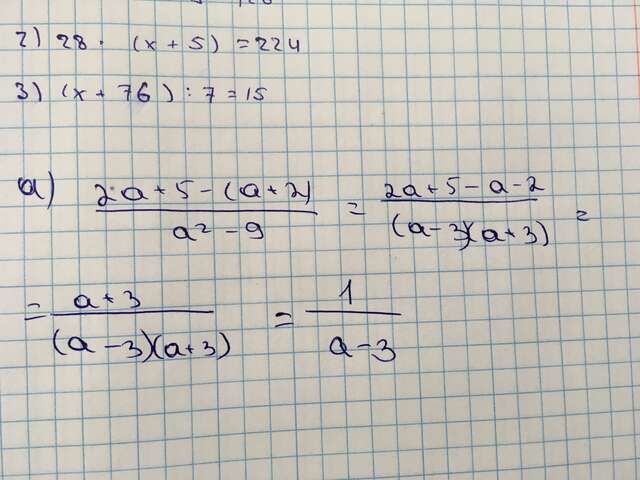 2) 28 · (x + 5) = 224
3) (x + 76) : 7 = 15
a) (2a + 5 - (a + 2)) / (a² - 9) = (2a + 5 - a - 2) / ((a - 3)(a + 3)) =
= (a + 3) / ((a - 3)(a + 3)) = 1 / (a - 3)